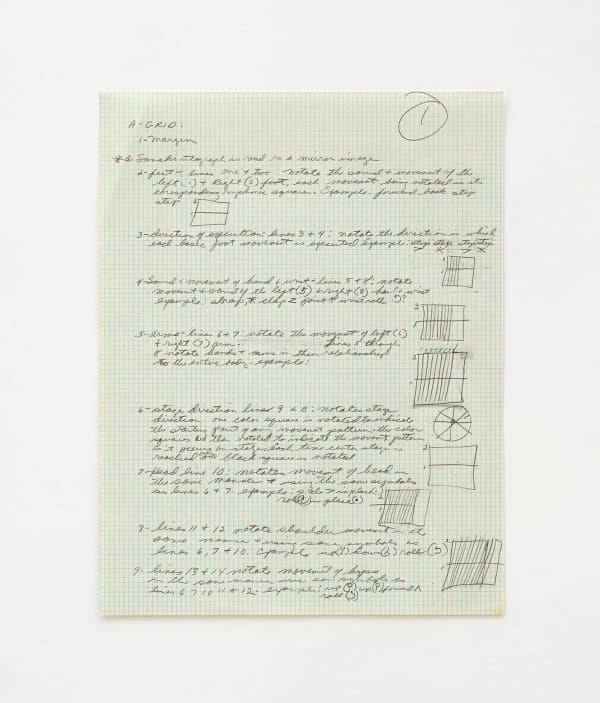 1
A-GRID:
1-margin
is read as a mirror image
2-feet - lines one + two notate the sound + movement of the
left (1) + Right (2) foot, each movement being notated in its
square. Example: forward back step
step
3-direction of execution-lines 3 + 4: notate the direction in which
each basic foot movement is executed example: step step step step
4-Sound + movement of hand + wrist-lines 5 + 8: notate
movement + sound of the left (5) + right (8) hand + wrist
example: clap point wrist roll
5-arms-line 6+7: notate the movement of left (6)
+ right (7) arm. lines 5 though
8 notate hands + arms in their relationship
to the entire body. example:
6-stage direction lines 9 & 8: notates stage
direction. one color square is notated to indicate
the starting point of any movement pattern. the color
squares are then notated to indicate the movement pattern
as it occurs on stage. each time center stage is
reached the black square is notated
7-Head line 10: notates movement of head in
the same manner + using the same symbols
as lines 6 + 7. example: in place
roll in place
8-lines 11 + 12 notate shoulder movement in the
same manner + using same symbols as
lines 6, 7 + 10. example up down roll
9-lines 13 + 14 notate movement of hips
in the same manner same symbols as
lines 6 7 10 11 + 12. example: up
roll